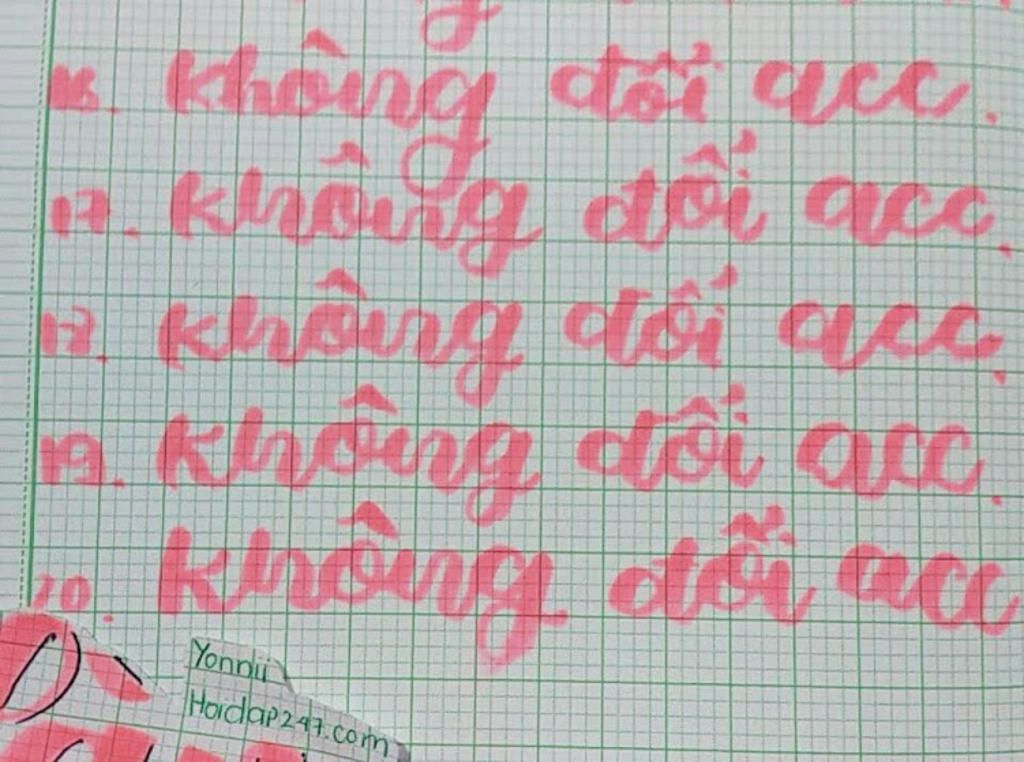 16. không đối acc.
17. không đối acc.
18. không đối acc.
19. không đối acc.
20. không đối acc
Yonnii
Hoidap247.com